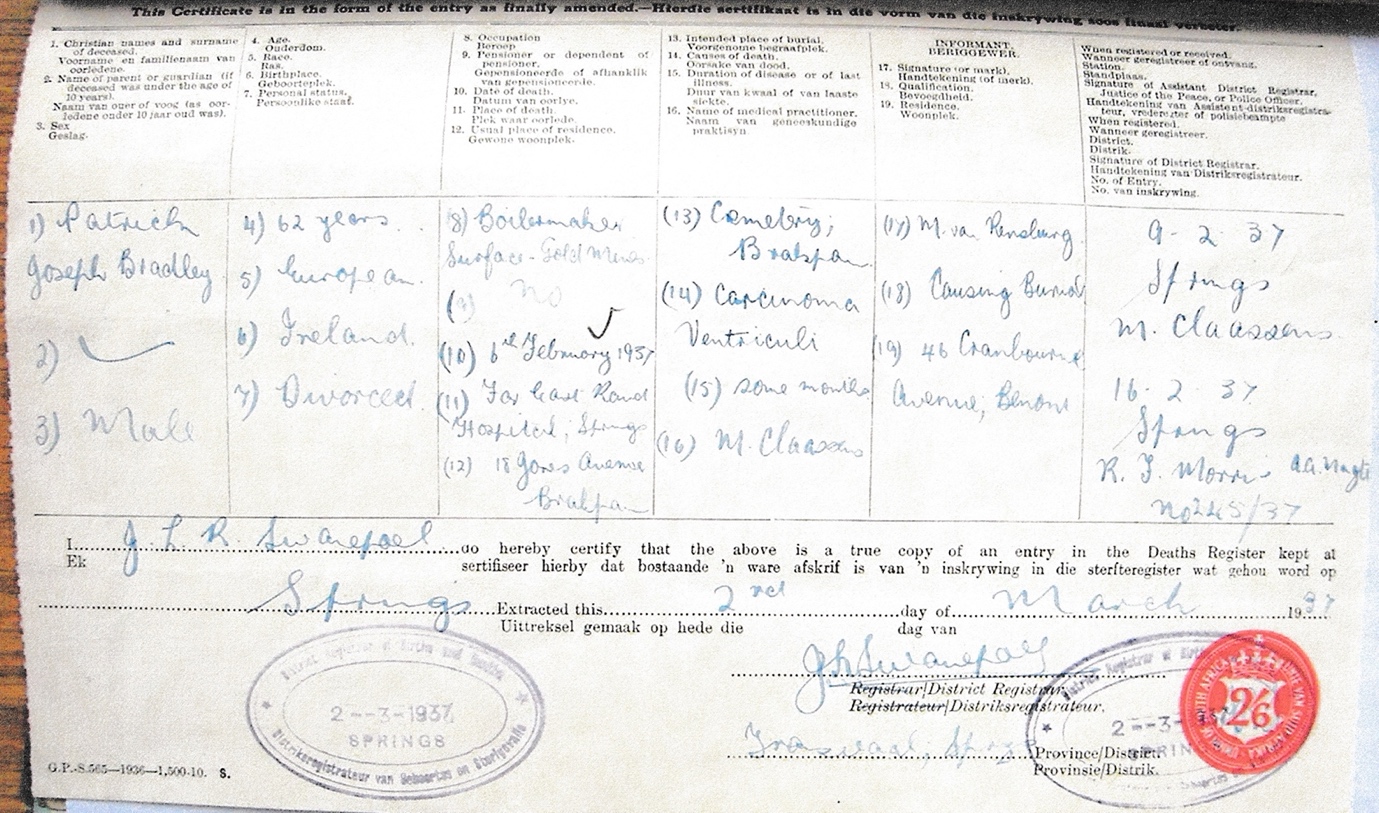 This Certificate is in the form of the entry as finally amended.—Hierdie sertifikaat is in die vorm van die inskrywing soos finaal verbeter.
1. Christian names and surname
of deceased.
Voorname en familienaam van
oorledene.
2. Name of parent or guardian (if
deceased was under the age of
10 years).
Naam van ouer of voog (as oor-
ledene onder 10 jaar oud was).
3. Sex
Geslag.
4. Age.
Ouderdom.
5. Race.
Ras.
6. Birthplace.
Geboorteplek.
7. Personal status.
Persoonlike staat.
8. Occupation
Beroep
9. Pensioner or dependent of
pensioner.
Gepensioneerde of afhanklik
van gepensioneerde.
10. Date of death.
Datum van oorlye.
11. Place of death.
Plek waar oorlede.
12. Usual place of residence.
Gewone woonplek.
13. Intended place of burial.
Voorgenome begraafplek.
14. Causes of death.
Oorsake van dood.
15. Duration of disease or of last
illness.
Duur van kwaal of van laaste
siekte.
16. Name of medical practitioner.
Naam van geneeskundige
praktisyn.
INFORMANT.
BERIGGEWER.
17. Signature (or mark).
Handtekening (of merk).
18. Qualification.
Bevoegdheid.
19. Residence.
Woonplek.
When registered or received.
Wanneer geregistreer of ontvang.
Station.
Standplaas.
Signature of Assistant District Registrar,
Justice of the Peace, or Police Officer.
Handtekening van Assistent-distriksregistra-
teur, vrederegter of polisiebeampte
When registered.
Wanneer geregistreer.
District.
Distrik.
Signature of District Registrar.
Handtekening van Distriksregistrateur.
No. of Entry.
No. van inskrywing.
1) Patrick
Joseph Bradley
2)
3) Male
4) 62 years.
5) European.
6) Ireland.
7) Divorced.
8) Boilermaker
Surface - Gold Mines
(9) No
(10) 6th February 1937
(11) Far East Rand
Hospital, Springs
(12) 18 Avenue
Brakpan
(13) Cemetery,
Brakpan
(14) Carcinoma
Ventriculi
(15) some months
(16) M. Claassens
(17) M. van Rensburg
(18) Causing Burial
(19) 46 Cranbourne
Avenue, Benoni
9 - 2 - 37
Springs
M. Claassens
16 - 2 - 37
Springs
R. J. Morris
No 245/37
I J. L. R. Swanepoel do hereby certify that the above is a true copy of an entry in the Deaths Register kept at
Ek sertifiseer hierby dat bostaande 'n ware afskrif is van 'n inskrywing in die sterfteregister wat gehou word op
Springs Extracted this 2nd day of March 1937
Uittreksel gemaak op hede die dag van
Swanepoel
Registrar/District Registrar.
Registrateur/Distriksregistrateur.
Transvaal, Springs Province/District.
Provinsie/Distrik.
District Registrar of Births and Deaths
2--3-1937
SPRINGS
Distriksregistrateur van Geboortes en Sterfgevalle
District Registrar of Birth
2--3-1937
SPRINGS
2/6
G.P.-S.565—1936—1,500-10. S.